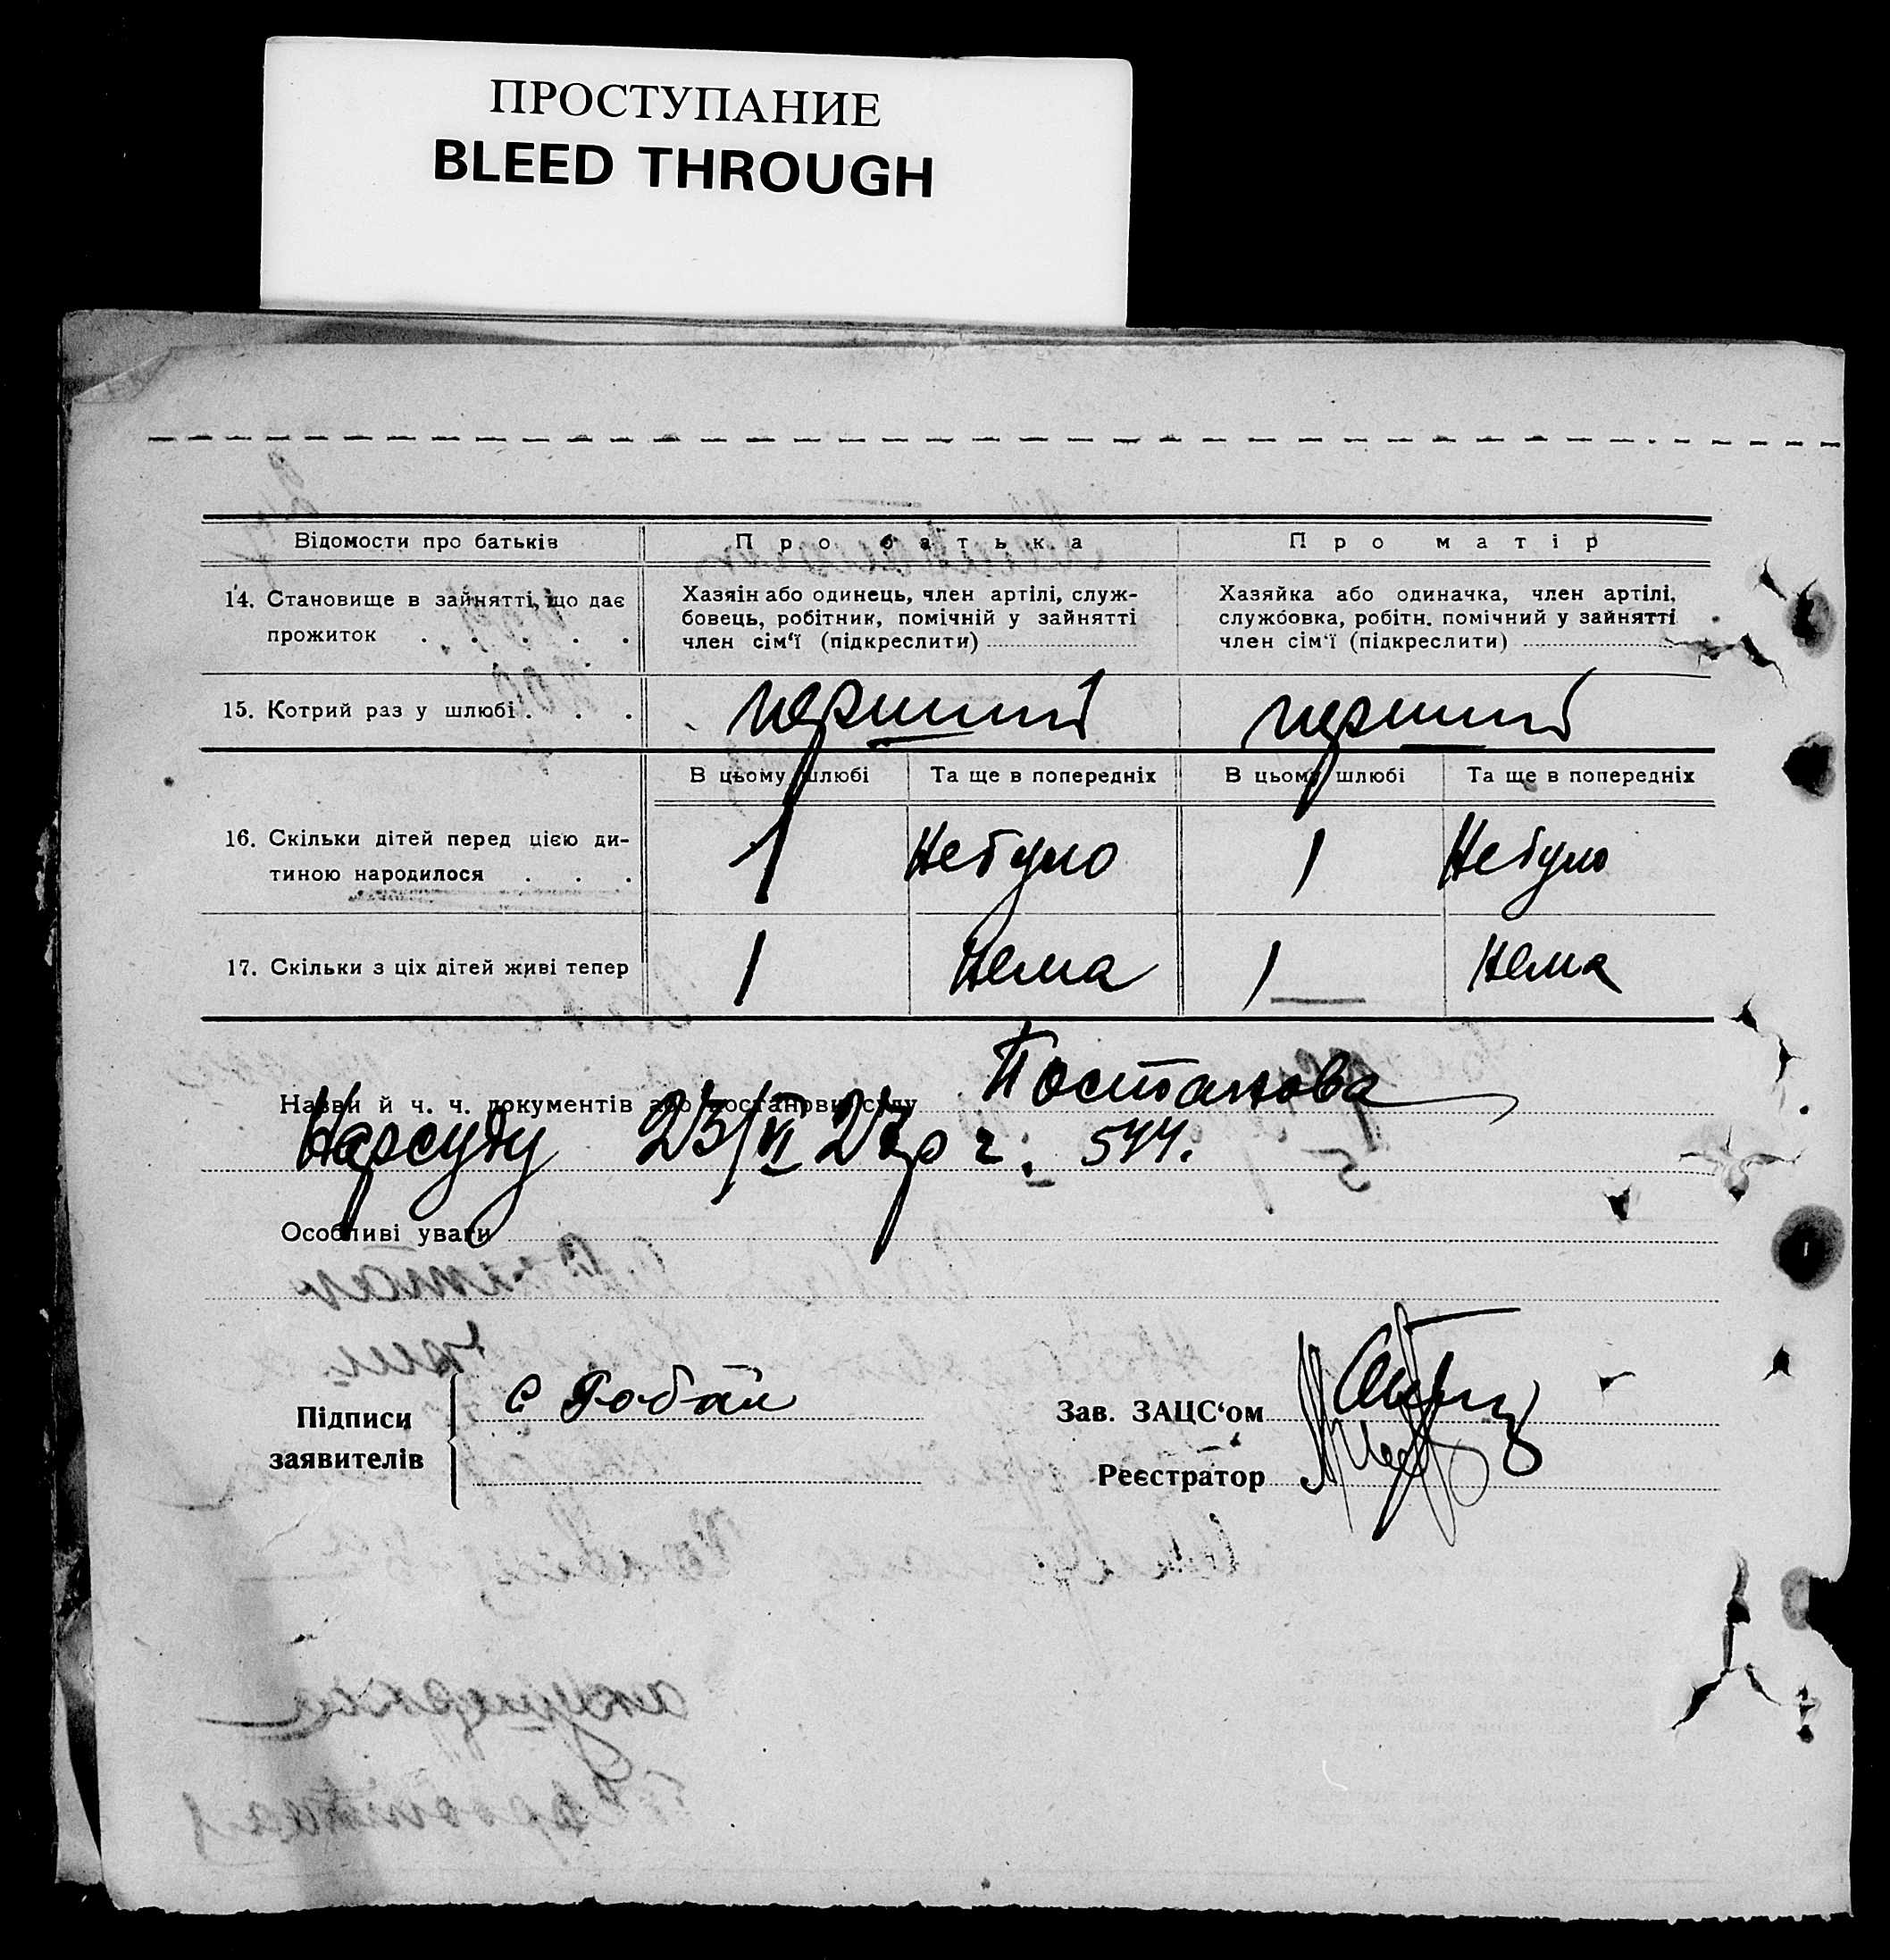 ПРОСТУПАНИЕ
BLEED THROUGH
Відомости про батьків
Про батька
Про матір
14. Становище в зайнятті, що дає
прожиток . . . . .
Хазяїн або одинець, член артілі, служ-
бовець, робітник, помічній у зайнятті
член сім'ї (підкреслити)
Хазяйка або одиначка, член артілі,
службовка, робітн. помічний у зайнятті
член сім'ї (підкреслити)
15. Котрий раз у шлюбі . . .
перший
перший
В цьому шлюбі
Та ще в попередніх
В цьому шлюбі
Та ще в попередніх
16. Скільки дітей перед цією ди-
тиною народилося . . .
1
Небуло
1
Небуло
17. Скільки з ціх дітей живі тепер
1
Нема
1
Нема
Назви й ч. ч. документів або постанови суду
Постанова
Нарсуду 23/VI 27р г. 544.
Особливі уваги
Підписи
заявителів
Зав. ЗАЦС'ом
Реєстратор